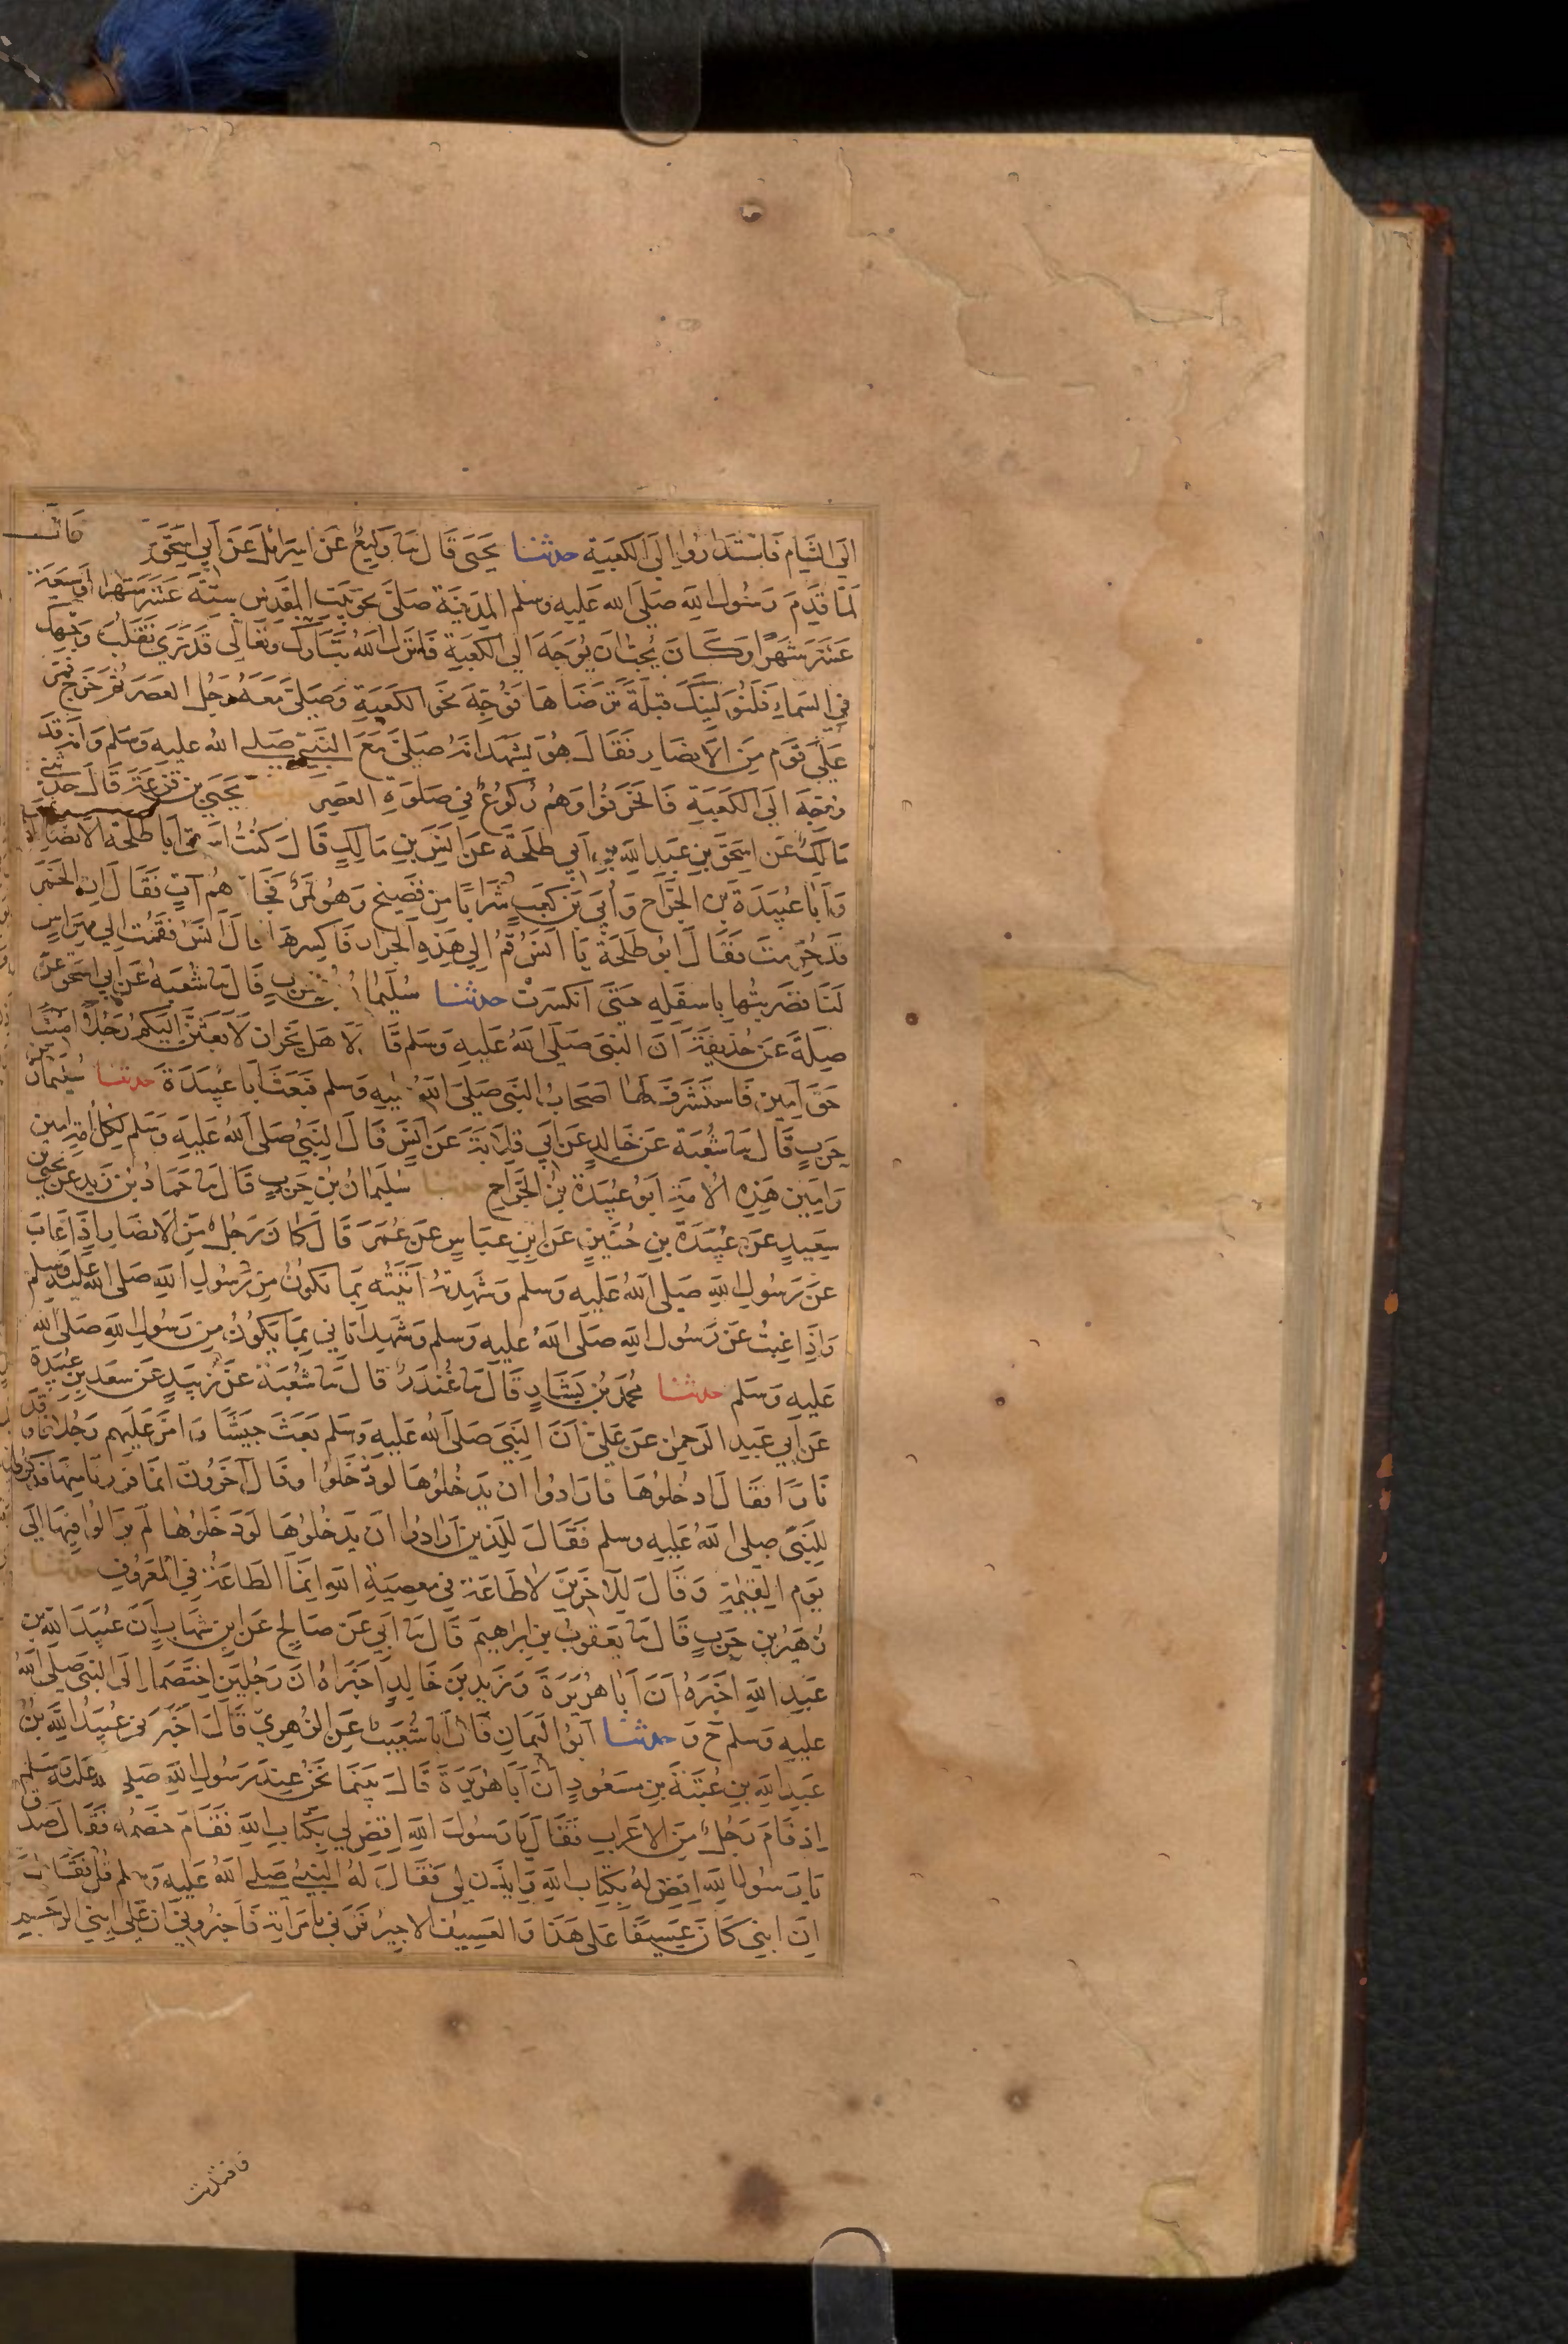 الَى الشَّامِ فَاسْتَدَارُوا اِلَى الكَعْبَةِ حدثنا يَحْيَى قَالَ ثنا وَكِيعٌ عَن اِسرَائِلَ عَن اَبِي اِسْحَقَ
لَمَّا قَدِمَ رَسُولُ اللهِ صَلَى الله عَلَيهِ وسلم المَدِينَةَ صَلَّى نَحوَ بَيتِ المَقْدِسِ سِتَّةَ عَشَرَ شَهرًا اَوسَبعَةَ
عَشَرَ شَهْرًا وَكَانَ يُحِبُّ اَن يُوَجَهَ اِلى الكعبَةِ فَانزَلَ اللهُ تَبَارَكَ وتَعَالى قَد نَرَى تَقَلُّبَ وَجْهِكَ
في السَمَاءِ فَلَنُوَلِيَنَّكَ قِبْلَةً تَرضَاهَا فَوُجِّهَ نَحوَ الكَعْبَةِ وَصَلىَّ مَعَهُ رَجُل العَصرَ ثُمَّ خَرَجَ فَمَرَّ
عَلَى قَوم مِنَ الاَنصَارِ فَقَالَ هُوَ يَشْهَد اَنهُ صَلىَّ مَعَ النَّبيّ صَلى اللهُ عليه وَسَلم وَاَنهُ قَدْ
وُجِّهَ الَى الكَعْبَةِ فَانحَرَفُوا وَهُم رُكوُعٌ في صَلوَةِ العَصرِ حدثنا يَحيَى بن قَزعَةَ قَالَ حَدثَني
مَالِكٌ عَن اِسحَقَ بنِ عَبدِ اللهِ بنِ اَبي طَلحَةَ عَن اَنَسِ بنِ مَالِكٍ قَالَ كُنتُ اَسقِى اَبا طَلحَةَ الاَنصَارِيَّ
وَاَبَا عُبَيدَةَ بن الجرَّاح وَاُبَىَ بنَ كَعبٍ شَرَابًا مِن فَضِيخٍ وَهُوَ تَمرٌ فَجَاءَهُم آتٍ فَقَالَ اِنَّ الخَمرَ
قَد حُرِّمَت فَقَالَ اَبو طَلحَةَ يَا اَنَسُ قُم اِلى هَذِهِ الجِرَارِ فَاكسِرهَا قَالَ اَنَسٌ فَقُمتُ اِلى مِهرَاسٍ
لَنَا فضَرَبتُها باسفَلِهِ حَتَّى انكَسَرَتْ حدثنا سُلَيمَانُ بنُ حَربٍ قَالَ ثنا شُعبَةُ عَن اَبي اِسحَقَ عَن
صِلَةَ عَن حُذَيفَةَ اَنَ النَّبىَ صَلَى اللهُ عَلَيهِ وَسَلم قَالَ لاَهلِ نَجرَان لاَبعَثَنَّ اِلَيكُم رَجُلًا اَمِينًا
حَقَّ اَمِينٍ فَاستَشرَفَ لهَا اَصحَابُ النَّبى صَلَى اللهُ عليهِ وَسلم فَبَعَثَ اَبَا عُبَيدَةَ حدثنا سُلَيمَانُ بن
حَربٍ قَالَ ثنا شُعبَة عَن خَالِدٍ عَن اَبي قِلاَبَةَ عَن اَنَسٍ قَالَ النَّبىُّ صَلى اللهُ عَلَيهِ وَسَلم لِكُلِّ اُمَّةٍ اَمِين
وَاَمِينُ هَذِهِ الاُمَةِ اَبُو عُبَيدَةَ بنُ الجَرَّاح حدثنا سُلَيمَانُ بن حَربٍ قَالَ ثنا حَمَادُ بنُ زَيدٍ عَن يَحيَى بن
سَعِيدٍ عَن عُبَيدَةَ بنِ حُنَينٍ عَن ابنِ عبَاسٍ عَن عُمَرَ قَالَ كَانَ رَجُلٌ مِنَ الاَنصَارِ اِذَا غَابَ
عَن رَسُولِ اللهِ صَلى اللهُ عَلَيهِ وسلم وَشَهِدتُهُ اَتَيتُه بِمَا يَكونُ مِن رَسُولِ اللهِ صَلى الله عَلَيهِ وسلم
وَاِذَا غِبتُ عَن رَسُولِ اللهِ صَلَى اللهُ عليهِ وسلم وَشَهِد اَتَاني بِمَا يَكُونُ مِن رَسُولِ اللهِ صَلَى اللهُ
عَلَيهِ وَسَلم حدثنا مُحَمَدُ بنُ بَشَّارٍ قَالَ ثنا غُندَرٌ قَالَ ثنا شُعْبَة عَن زُبَيدٍ عَن سَعدِ بنِ عُبَيدَةَ
عَن اَبي عَبدِ الرَحمنِ عَن عَلىّ اَنَ النَّبىَ صَلَى اللهُ عَلَيهِ وَسَلم بَعَثَ جَيشًا وَاَمَّرَ عَلَيهِم رَجُلاً فَاَوقَد
نَارًا فقَالَ ادخُلُوهَا فَارَادُوا اَن يَدخُلُوهَا وقَالَ آخَرُونَ اِنَّمَا فَرَرنَا مِنهَا فَذَكَرُوا
لِلنَّبىّ صلى اللهُ عَلَيهِ وسلم فَقَالَ لِلَّذِينَ اَرَادُوا اَن يَدخُلُوهَا لَو دَخَلوُهَا لَم يَزَالُوا فِيهَا اِلَى
يَومِ القِيمَةِ وَقَالَ لِلآخَرِينَ لاَطَاعَةَ في مَعصِيَةِ اللهِ اِنَّمَا الطَاعَةُ فِي المَعرُوفِ حدثنا
زُهَيرُ بن حَربٍ قَالَ ثنا يَعقوُبُ بن اِبراهِيمَ قَالَ ثنا اَبي عَن صَالِحٍ عَن ابنِ شِهَابٍ اَنَّ عُبَيدَ اللهِ بن
عَبدِ اللهِ اَخبَرَهُ اَنَّ اَبَا هُرَيرَةَ وَزَيدَ بنَ خَالِدٍ اَخبَرَاهُ اَنَّ رَجُلَينِ اختَصَمَا اِلَى النَّبىّ صَلى اللهُ
عليهِ وَسلم ح وَ حدثنا اَبُو اليَمَانِ قَالَ اَنا شُعَيبٌ عَنِ الزُهرِيّ قَالَ اَخبَرَني عُبَيدُ اللهِ بنُ
عَبدِ اللهِ بنِ عُتبَةَ بنِ مسعُودٍ اَنَّ اَبَا هُرَيرَةَ قَالَ بَينَمَا نَحنُ عِندَ رَسُولِ اللهِ صَلى الله عَلَيهِ وَسلم
اِذ قَامَ رَجُلٌ مِنَ الاَعرَابِ فَقَالَ يَا رَسُولَ اللهِ اقضِ لِي بِكِتَابِ اللهِ فَقَامَ خَصمُهُ فَقَالَ صَدَقَ
يَا رَسُولَ اللهِ اقضِ لَهُ بِكِتَابِ اللهِ وَايذَن لي فقَالَ لَهُ النَّبيُّ صَلى اللهُ عَلَيهِ وَسلم قُل فَقَالَ
اِنَّ ابنِى كَانَ عَسِيفًا عَلى هَذَا وَالعَسِيفُ الاَجِيرُ فَزَنى بامرَاَتِهِ فَاَخبَرُوني اَنَّ عَلَى ابنِي الرَجمَ
فافتديت